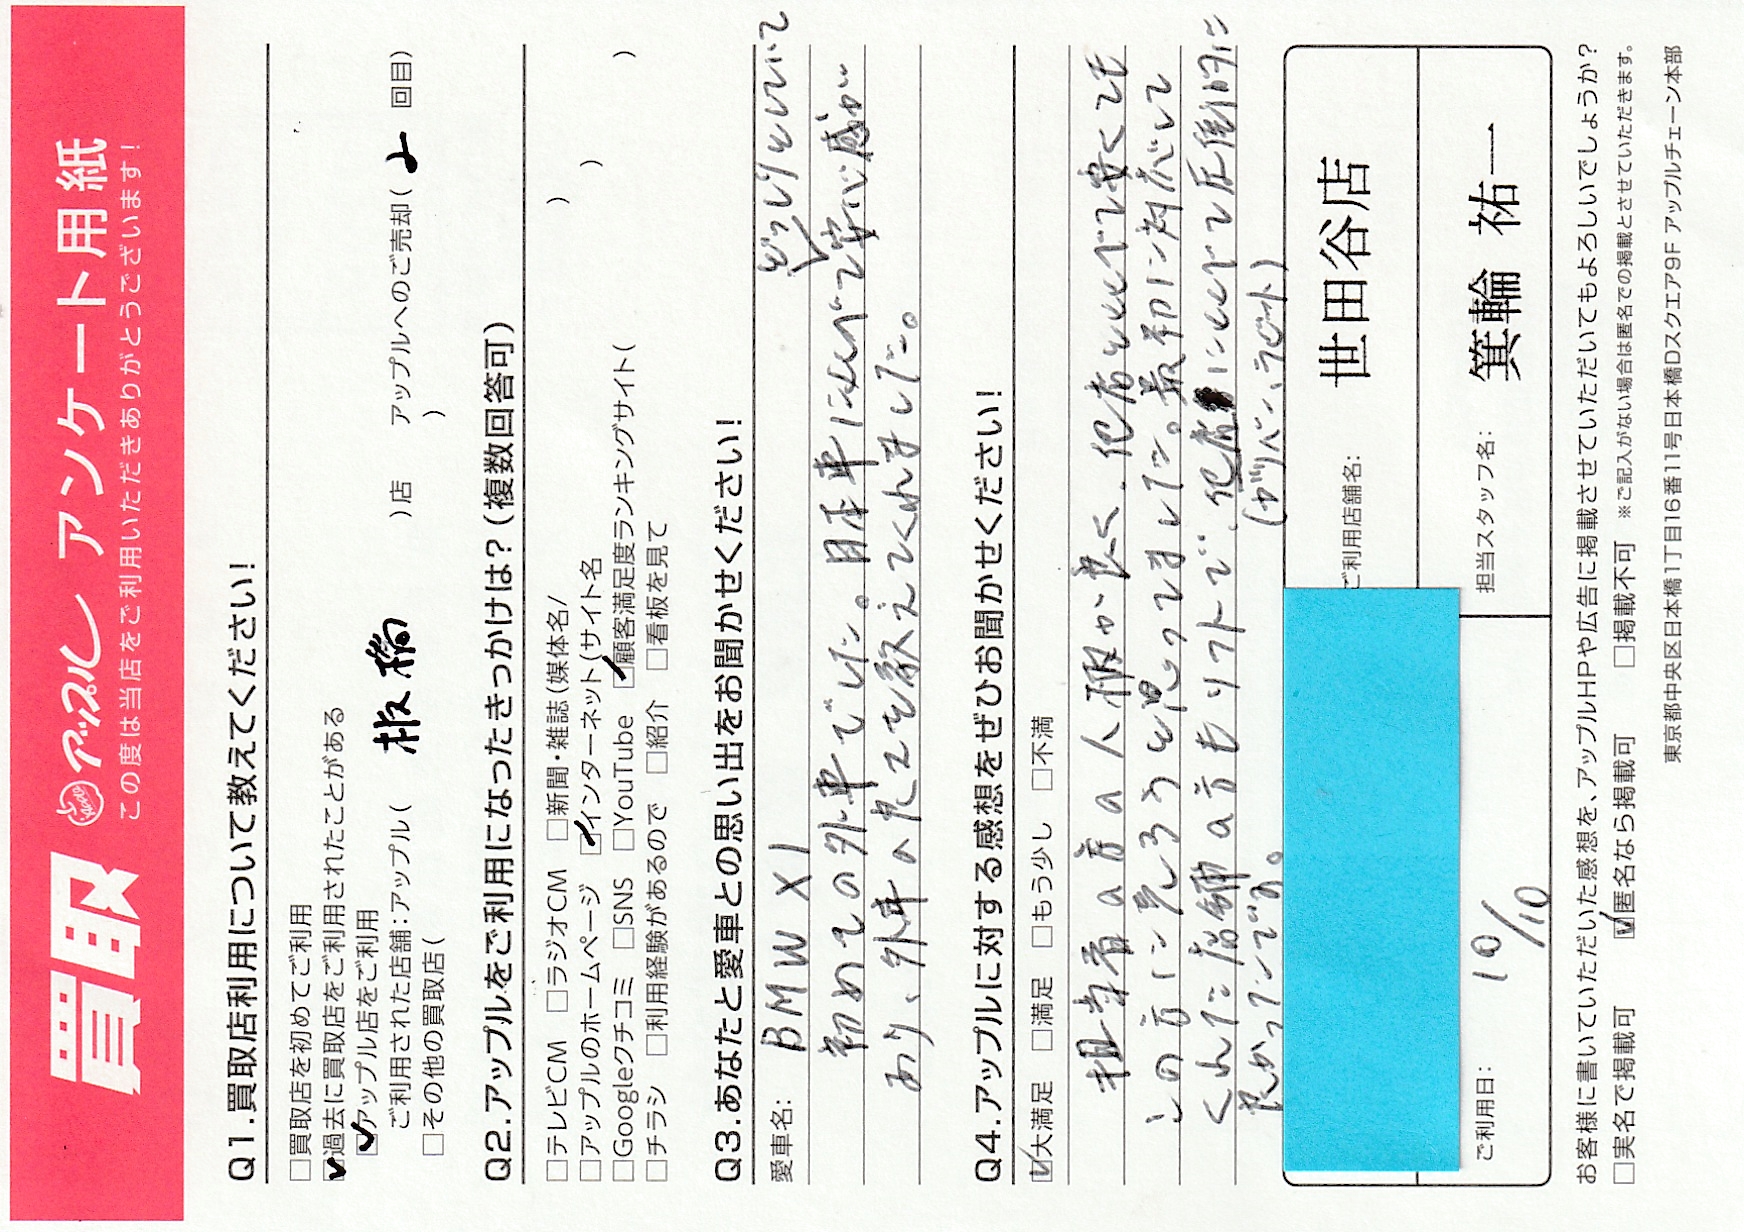 買取 アップル アンケート用紙
この度は当店をご利用いただきありがとうございます!
Q1.買取店利用について教えてください!
□買取店を初めてご利用
☑過去に買取店をご利用されたことがある
☑アップル店をご利用
ご利用された店舗:アップル( 板橋 )店 アップルへのご売却( 2 回目)
□その他の買取店( )
Q2.アップルをご利用になったきっかけは?(複数回答可)
□テレビCM □ラジオCM □新聞・雑誌(媒体名/ )
□アップルのホームページ ☑インターネット(サイト名 )
□Googleクチコミ □SNS □YouTube ☑顧客満足度ランキングサイト( )
□チラシ □利用経験があるので □紹介 □看板を見て
Q3.あなたと愛車との思い出をお聞かせください!
愛車名: BMW X1
どっしりとしていて
初めての外車でした。日本車にくらべて安心感が
あり、外車の良さを教えてくれました。
Q4.アップルに対する感想をぜひお聞かせください!
☑大満足 □満足 □もう少し □不満
担当者の方の人柄が良く、他店とくらべて安くても
この方に売ろうと思ってました。最初に対応して
くれた店舗の方もソフトで、他店にくらべて圧倒的に
良かったです。 (ガリバー、ラビット)
ご利用店舗名: 世田谷店
ご利用日: 10/10
担当スタッフ名: 箕輪 祐一
お客様に書いていただいた感想を、アップルHPや広告に掲載させていただいてもよろしいでしょうか?
□実名で掲載可 ☑匿名なら掲載可 □掲載不可 ※ご記入がない場合は匿名での掲載とさせていただきます。
東京都中央区日本橋1丁目16番11号日本橋Dスクエア9F アップルチェーン本部